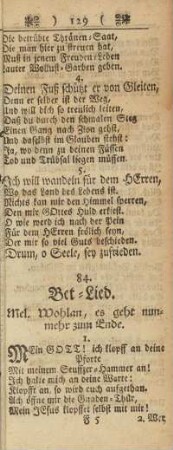 ) 129 (
Die betrübte Thränen-Saat,
Die man hier zu streuen hat,
Muß in jenem Freuden-Leben
Lauter Wollust-Garben geben.
4.
Deinen Fuß schützt er von Gleiten,
Denn er selber ist der Weg,
Und will dich so treulich leiten,
Daß du durch den schmalen Steg
Einen Gang nach Zion gehst,
Und daselbst im Glauben stehst:
Ja, wo denn zu deinen Füssen
Tod und Trübsal liegen müssen.
5.
Ich will wandeln für dem HErren,
Wo das Land des Lebens ist.
Nichts kan mir den Himmel sperren,
Den mir GOttes Huld erkiest.
O wie werd ich nach der Pein
Für dem HErren frölich seyn,
Der mir so viel Guts beschieden.
Drum, o Seele, sey zufrieden.
84.
Bet-Lied.
Mel. Wohlan, es geht nun-
mehr zum Ende.
1.
MEin GOTT! ich klopff an deine
Pforte
Mit meinem Seuffzer-Hammer an!
Ich halte mich an deine Worte:
Klopfft an, so wird euch aufgethan.
Ach öffne mir die Gnaden-Thür,
Mein JEsus klopffet selbst mit mir!
F 5 2. Wer